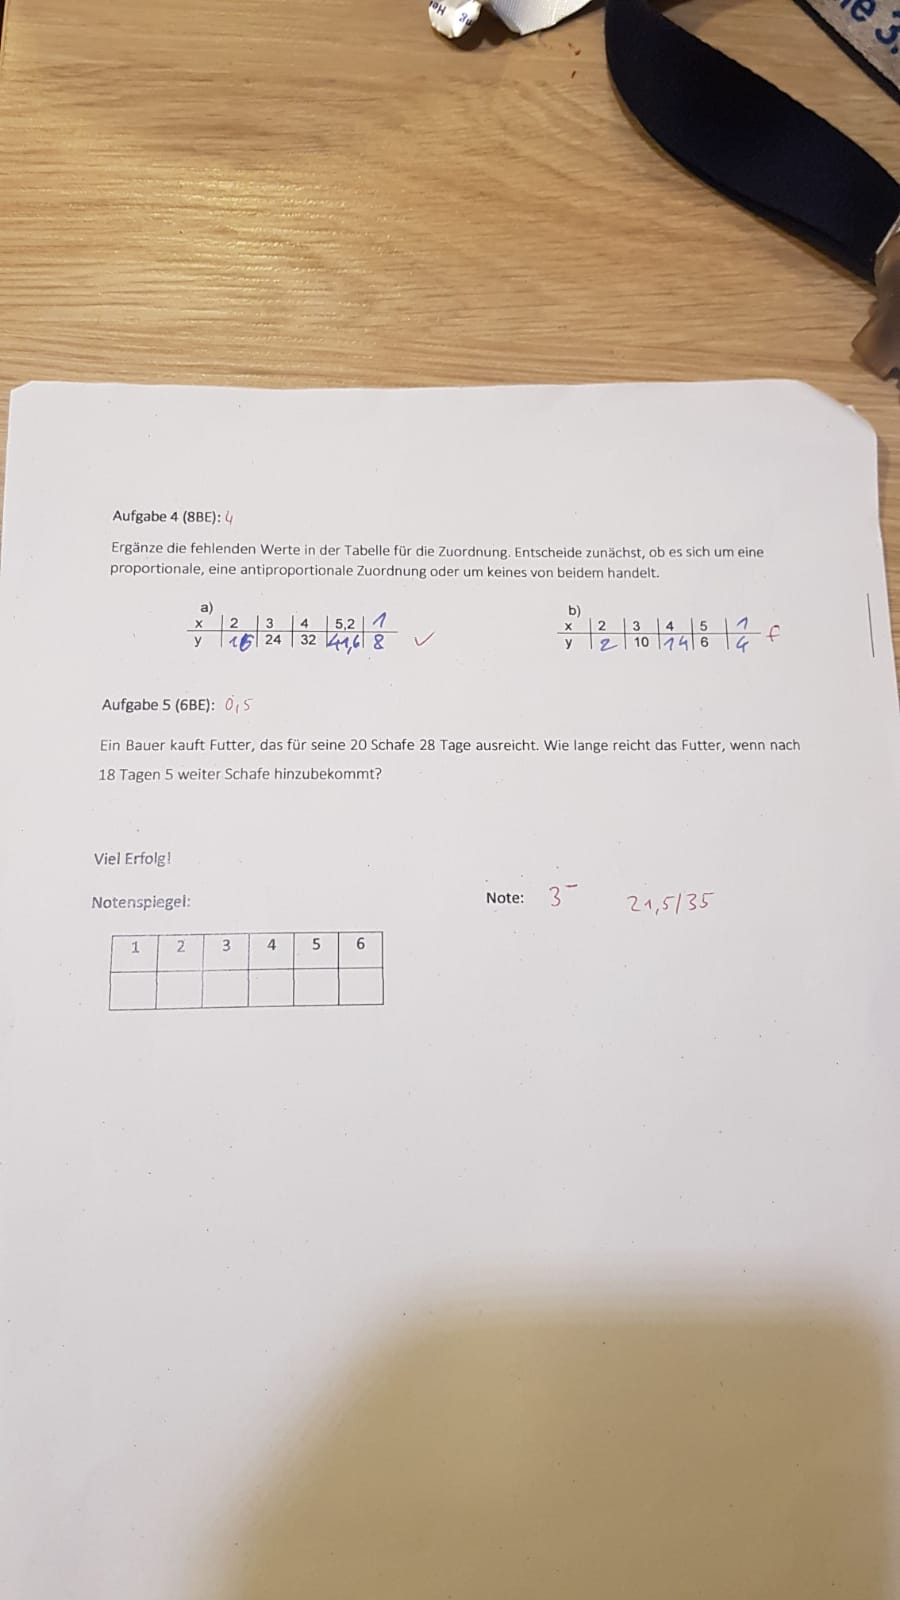 ne 3.
Aufgabe 4 (8BE): 4
Ergänze die fehlenden Werte in der Tabelle für die Zuordnung. Entscheide zunächst, ob es sich um eine
proportionale, eine antiproportionale Zuordnung oder um keines von beidem handelt.
a)
x 2 3 4 5,2 1
y 16 24 32 41,6 8 ✓
b)
x 2 3 4 5 1
y 2 10 14 6 4 f
Aufgabe 5 (6BE): 0,5
Ein Bauer kauft Futter, das für seine 20 Schafe 28 Tage ausreicht. Wie lange reicht das Futter, wenn nach
18 Tagen 5 weiter Schafe hinzubekommt?
Viel Erfolg!
Notenspiegel:
Note: 3- 21,5/35
1 2 3 4 5 6